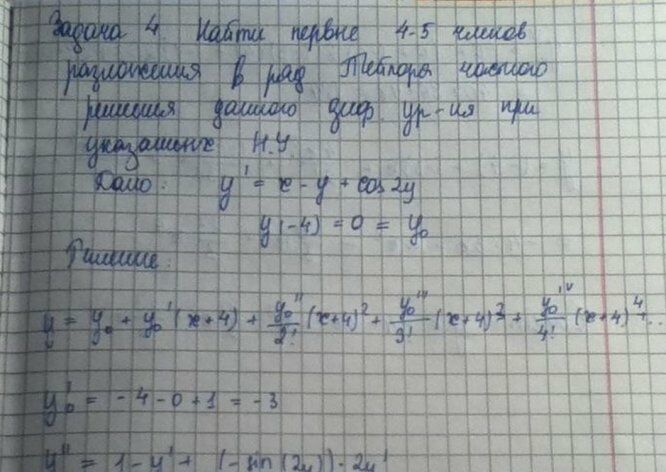 Задача 4. Найти первые 4-5 членов
разложения в ряд Тейлора частного
решения данного диф. ур-ия при
указанных Н.У
Дано: y' = x - y + cos 2y
y(-4) = 0 = y₀
Решение:
y = y₀ + y₀'(x+4) + y₀''/2! (x+4)² + y₀'''/3! (x+4)³ + y₀ᴵⱽ/4! (x+4)⁴ + ...
y₀' = -4 - 0 + 1 = -3
y'' = 1 - y' + (-sin(2y)) · 2y'